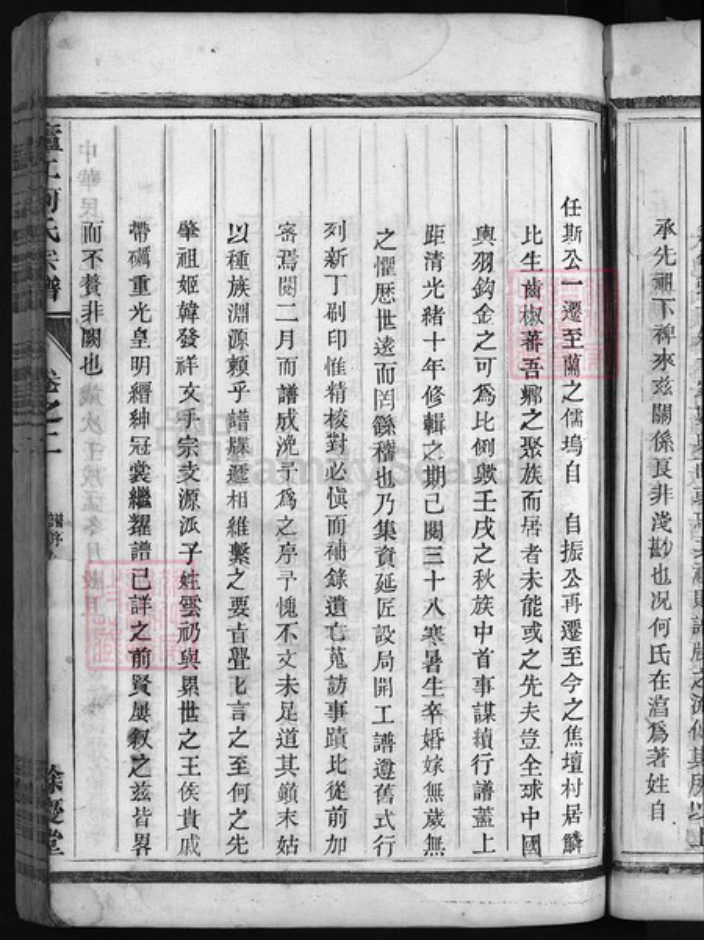 承先祖下裨來兹關係良非淺尠也况何氏在湻爲著姓自
任斯公一遷至蘭之儒塢自 自振公再遷至今之焦壇村居鱗
比生齒椒蕃吾鄉之聚族而居者未能或之先夫豈全球中國
輿羽鈎金之可爲比例歟壬戌之秋族中首事謀續行譜蓋上
距清光緒十年修輯之期已閱三十八寒暑生卒婚嫁無歲無
之懼厯世遠而罔繇稽也乃集資延匠設局開工譜遵舊式行
列新丁刷印惟精校對必愼而補錄遺亡蒐訪事蹟比從前加
密焉閱二月而譜成浼予爲之序予愧不文未足道其顚末姑
以種族淵源賴乎譜牒遞相維繫之要㫖舋比言之至何之先
肇祖姬韓發祥文手宗支源派子姓雲礽與累世之王侯貴戚
帶礪重光皇明縉紳冠裳繼耀譜已詳之前賢屢叙之兹皆畧
而不贅非闕也
廬江何氏宗譜
卷之二
餘慶堂
FamilySearch